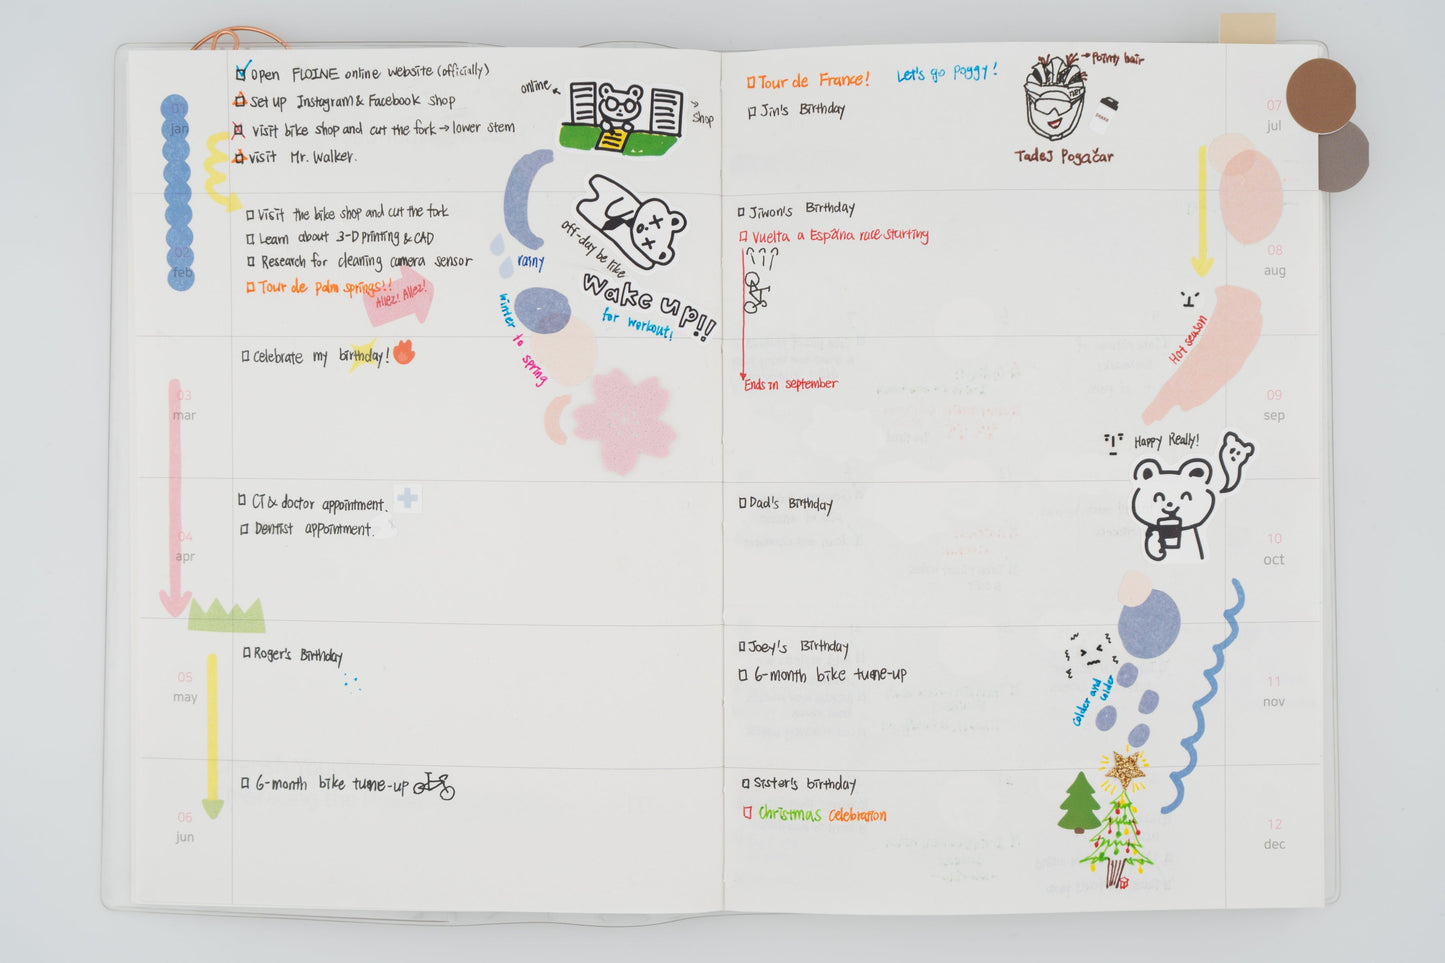 01
jan
Open FLOINE online website (officially)
Set up Instagram & Facebook shop
Visit bike shop and cut the fork → lower stem
Visit Mr. Walker.
online
Shop
02
feb
Visit the bike shop and cut the fork
Learn about 3-D printing & CAD
Research for cleaning camera sensor
Tour de Palm springs!!
Allez! Allez!
rainy
off-day be like
Wake up!!
for workout!
winter to spring
03
mar
Celebrate my birthday!
04
apr
CT & doctor appointment.
Dentist appointment.
05
may
Roger's Birthday
06
jun
6-month bike tune-up
07
jul
Tour de France!
Let's go Poggy!
Jin's Birthday
→ Pointy hair
Tadej Pogačar
08
aug
Jiwon's Birthday
Vuelta a España race starting
Hot season
09
sep
Ends in september
Happy Really!
10
oct
Dad's Birthday
11
nov
Joey's Birthday
6-month bike tune-up
colder and colder
12
dec
Sister's birthday
Christmas celebration